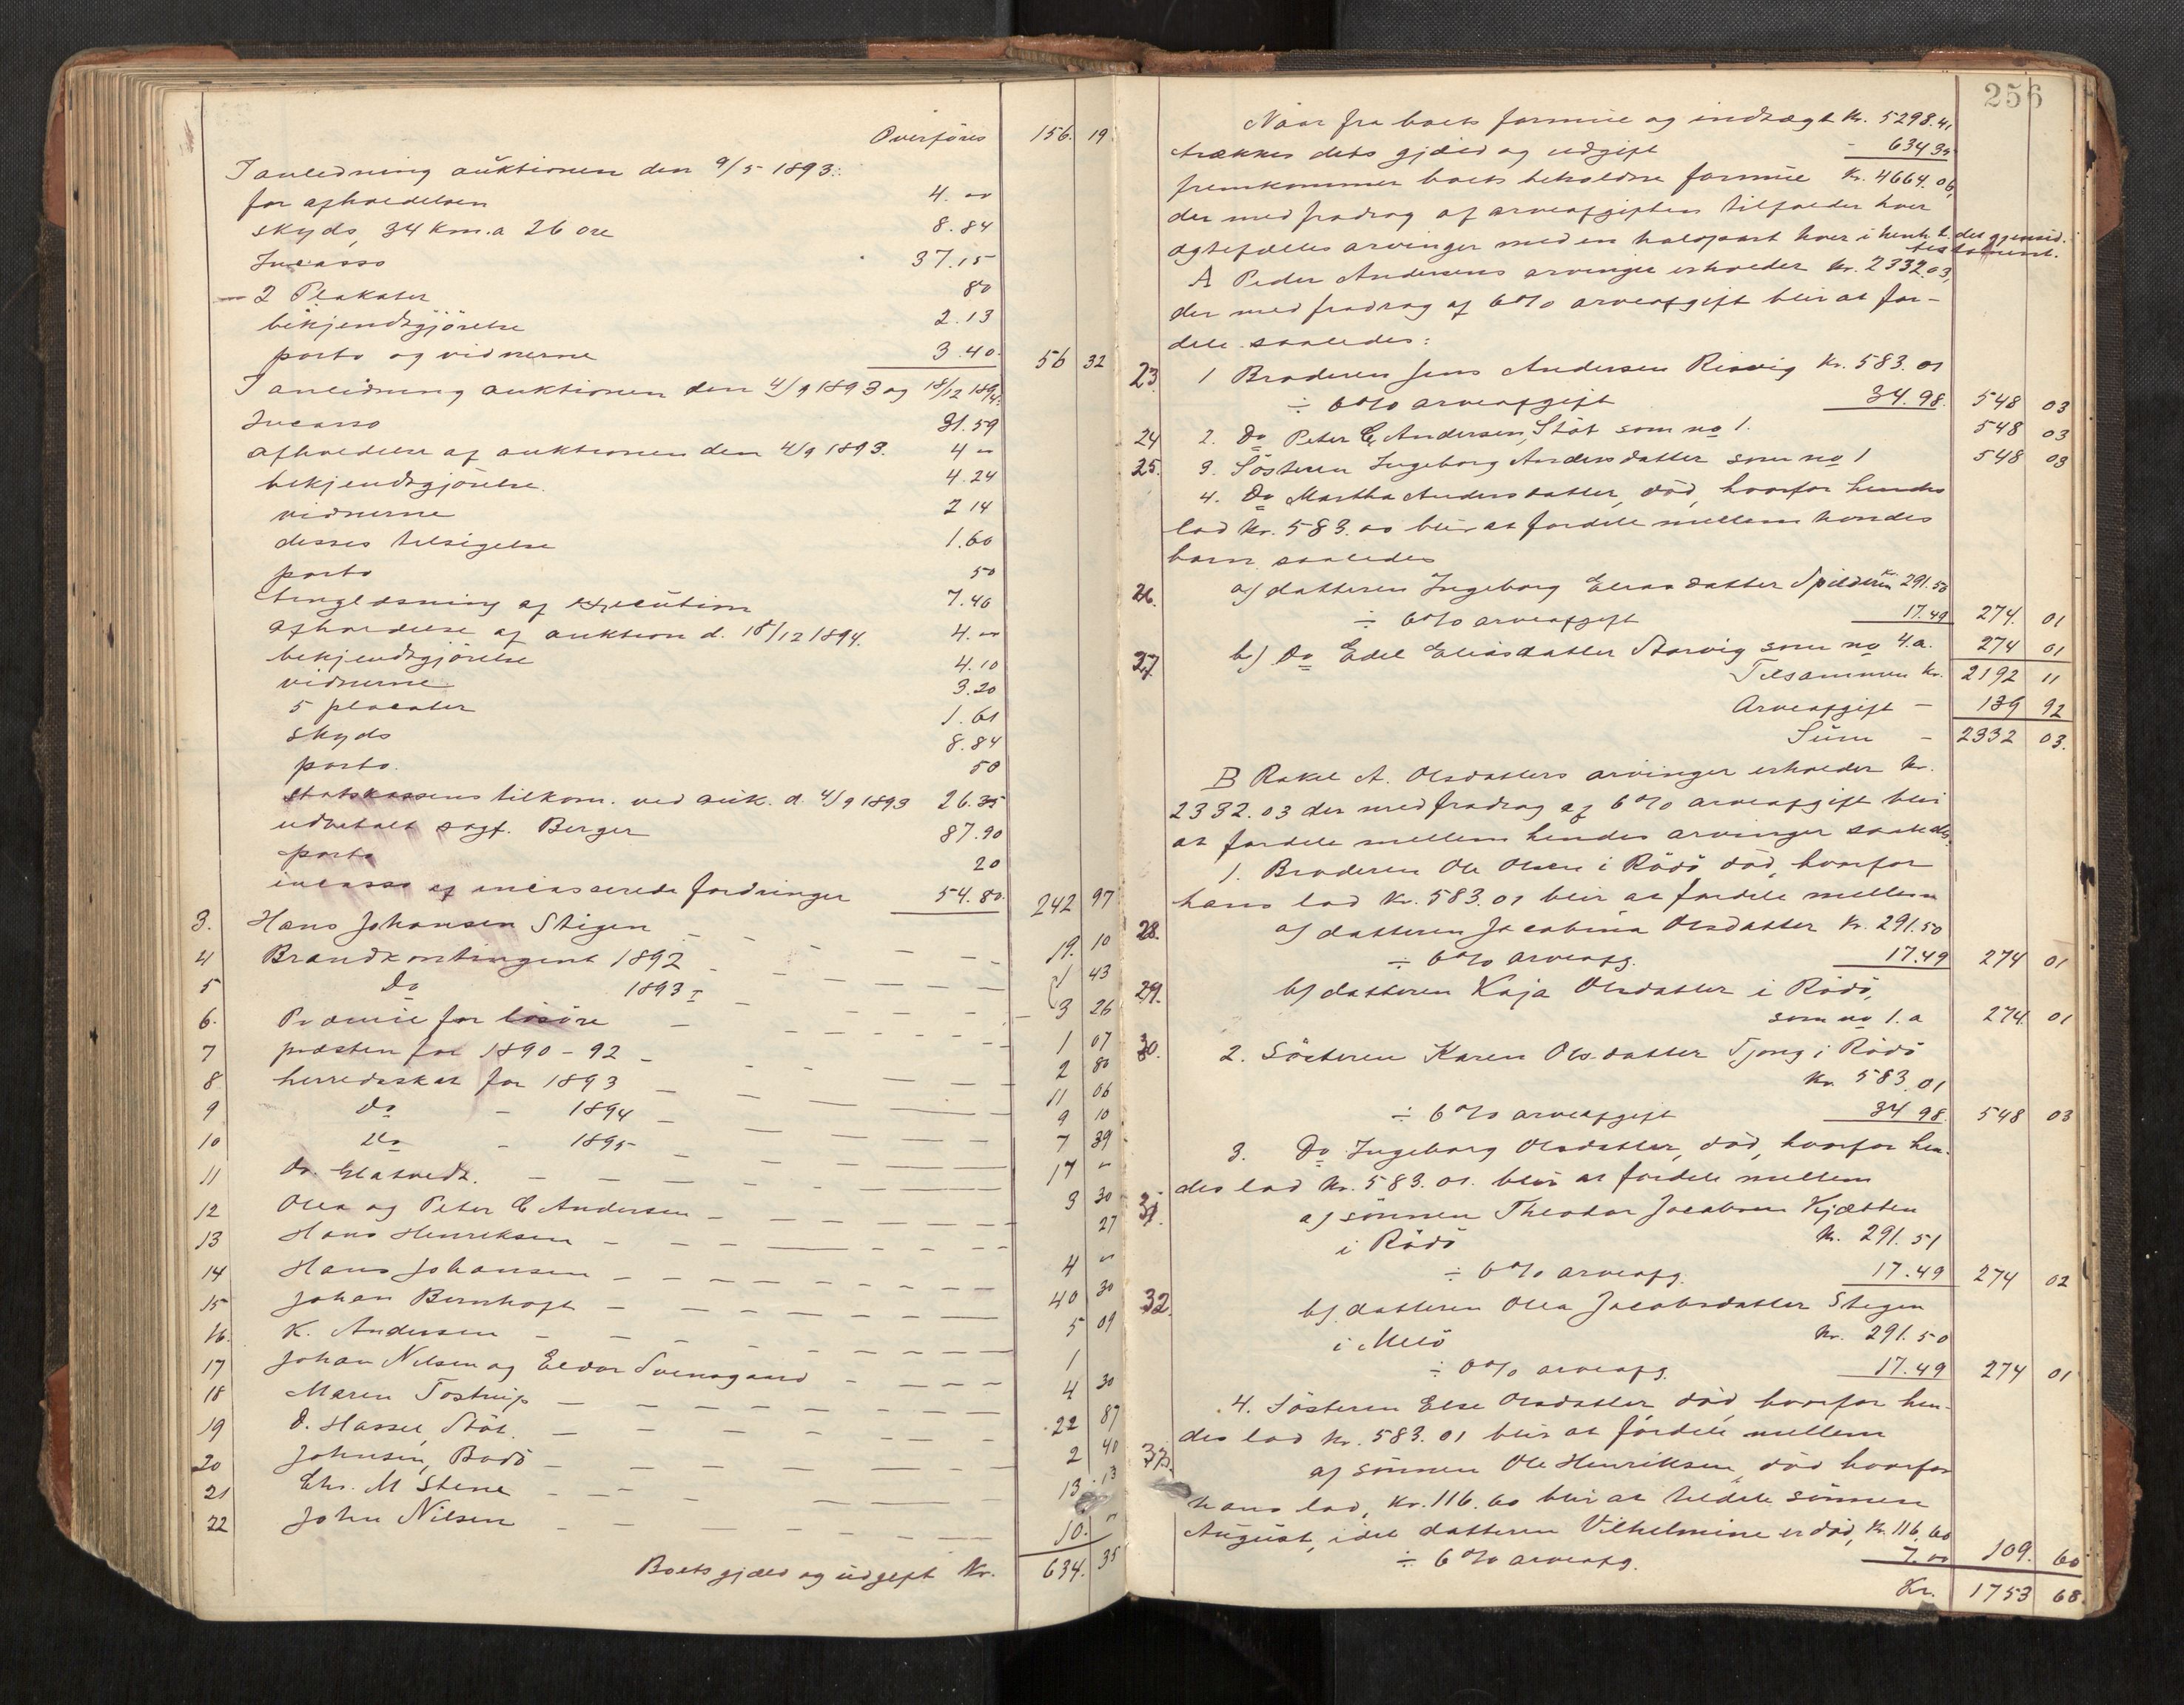 Overføres 156. 19
I anledning auktionen den 9/5 1893:
for afholdelsen 4. "
skyds, 34 Km. a 26 øre 8.84
Incasso 37.15
2 Plakater 80
bekjendtgjørelse 2.13
porto og vidnerne 3.40. 56 32
I anledning auktionen den 4/9 1893 og 18/12 1894:
Incasso 31.59
afholdelse af auktionen den 4/9 1893. 4 "
bekjendtgjørelse. 4.24
vidnerne 2 14
disses tilsigelse 1.60
porto 50
tinglæsning af execution 7.40
afholdelse af auktion d. 18/12 1894. 4. "
bekjendtgjørelse 4.10
vidnerne 3.20
5 placater 1.61
skyds 8.84
porto. 50
statskassens tilkom. ved auk. d. 4/9 1893 26.35
udbetalt sagf. Berger 87.90
porto 20
incasso af incasserede fordringer 54.80. 242 97
3. Hans Johansen Stigen 19. 10
4 Brandkontingent 1892 1 43
5 Do 1893 3 26
6. Præmie for løsøre 1 07
7 præsten for 1890-92 2 80
8 herredsskat for 1893 11 06
9 do - 1894 9 10
10 do - 1895 7 39
11 Dr. Glatvedt. 17 "
12 Olea og Peter C Andersen 3 30
13 Hans Henriksen 27
14 Hans Johansen 4 "
15 Johan Bernhoft 40 30
16. K. Andersen 5 09
17 Johan Nilsen og Eldor Svensgaard 1
18 Maren Tostrup 4 30
19 D. Hassel, Støt. 22 87
20 Johnsen, Bodø 2 40
21 Chr. M Stene 13 13
22 John Nilsen 10. "
Boets gjæld og udgift Kr. 634. 35
256
Naar fra boets formue og indtægt Kr. 5298.41
trækkes dets gjæld og udgift - 634 35
fremkommer boets beholdne formue Kr. 4664.06,
der med fradrag af arveafgiften tilfalder hver
ægtefælles arvinger med en halvpart hver i henh. t. det gjensid.
testament.
A Peder Andersens arvinger erholder Kr. 2332.03,
der med fradrag af 6% arveafgift blir at for-
dele saaledes:
23. 1 Broderen Jens Andersen Risvig Kr. 583.01
÷ 6% arveafgift 34.98. 548 03
24 2. Do Peter C Andersen, Støt som no 1. 548 03
25. 3. Søsteren Ingeborg Andersdatter som no 1 548 03
4. Do Martha Andersdatter, død, hvorfor hendes
lod Kr. 583.00 blir at fordele mellem hendes
børn saaledes
26. a) datteren Ingeborg Eliasdatter Spilderen Kr. 291.50
÷ 6% arveafgift 17.49 274. 01
27. b) Do Edel Eliasdatter Storvig som no 4.a. 274 01
Tilsammen Kr. 2192 11
Arveafgift - 139 92
Sum - 2332 03.
B Rakel A. Olsdatters arvinger erholder Kr.
2332.03 der med fradrag af 6% arveafgift blir
at fordele mellem hendes arvinger saaledes.
1. Broderen Ole Olsen i Rødø død, hvorfor
hans lod Kr. 583.01 blir at fordele mellem
28. a) datteren Jacobina Olsdatter Kr. 291.50
÷ 6% arveafg. 17.49 274 01
29. b) datteren Kaja Olsdatter i Rødø,
som no 1.a 274. 01
30. 2. Søsteren Karen Olsdatter Tjong i Rødø
Kr. 583.01
÷ 6% arveafgift 34 98. 548 03
3. Do Ingeborg Olsdatter, død, hvorfor hen-
des lod Kr. 583.01. blir at fordele mellem
31. a) sønnen Theodor Jacobsen Kjætten
i Rødø Kr. 291.51
÷ 6% arveafg. 17.49 274 02
32. b) datteren Olea Jacobsdatter Stigen
i Melø Kr. 291.50
÷ 6% arveafg. 17.49 274 01
4. Søsteren Else Olsdatter død, hvorfor hen-
des lod Kr. 583.01 blir at fordele mellem
33. a) sønnen Ole Henriksen, død hvorfor
hans lod, Kr. 116.60 blir at tildele sønnen
August, idet datteren Vilhelmine er død, Kr. 116.60
÷ 6% arveafg. 7.00 109. 60
Kr. 1753 68.